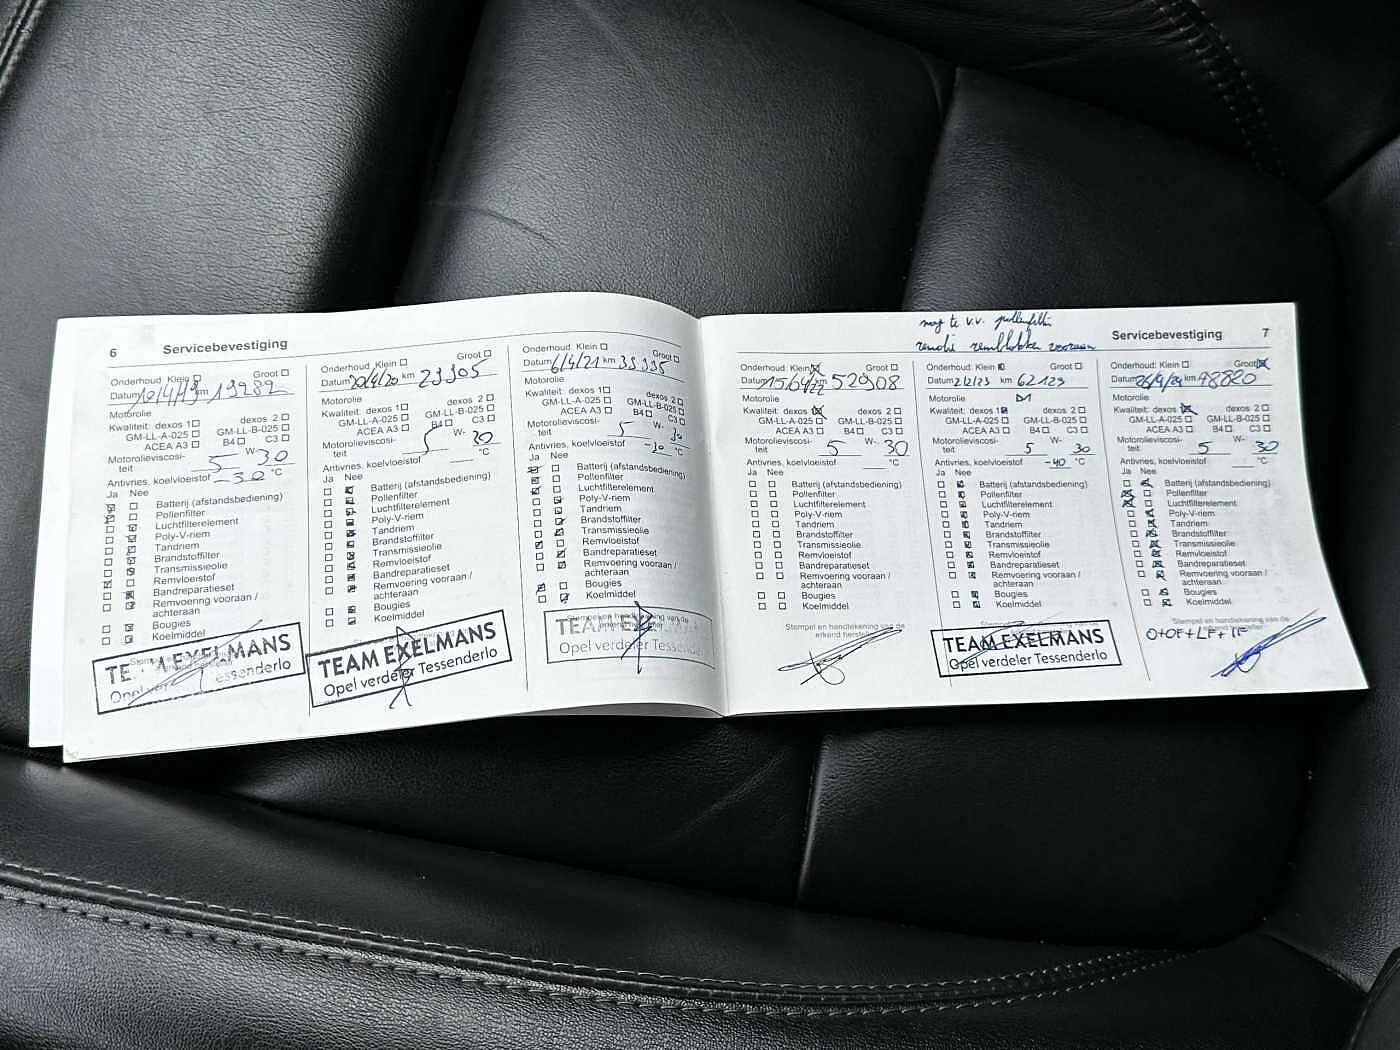 6 Servicebevestiging
Onderhoud: Klein Groot
Datum 10/4/19 km 19282
Motorolie
Kwaliteit: dexos 1 dexos 2
GM-LL-A-025 GM-LL-B-025
ACEA A3 B4 C3
Motorolieviscosi- 5 W- 30
teit
Antivries, koelvloeistof -30 °C
Ja Nee
Batterij (afstandsbediening)
Pollenfilter
Luchtfilterelement
Poly-V-riem
Tandriem
Brandstoffilter
Transmissieolie
Remvloeistof
Bandreparatieset
Remvoering vooraan /
achteraan
Bougies
Koelmiddel
TEAM EXELMANS
Opel verdeler Tessenderlo
Onderhoud: Klein Groot
Datum 20/4/20 km 29305
Motorolie
Kwaliteit: dexos 1 dexos 2
GM-LL-A-025 GM-LL-B-025
ACEA A3 B4 C3
Motorolieviscosi- 5 W- 30
teit
Antivries, koelvloeistof °C
Ja Nee
Batterij (afstandsbediening)
Pollenfilter
Luchtfilterelement
Poly-V-riem
Tandriem
Brandstoffilter
Transmissieolie
Remvloeistof
Bandreparatieset
Remvoering vooraan /
achteraan
Bougies
Koelmiddel
TEAM EXELMANS
Opel verdeler Tessenderlo
Onderhoud: Klein Groot
Datum 6/4/21 km 39395
Motorolie
Kwaliteit: dexos 1 dexos 2
GM-LL-A-025 GM-LL-B-025
ACEA A3 B4 C3
Motorolieviscosi- 5 W- 30
teit
Antivries, koelvloeistof -30 °C
Ja Nee
Batterij (afstandsbediening)
Pollenfilter
Luchtfilterelement
Poly-V-riem
Tandriem
Brandstoffilter
Transmissieolie
Remvloeistof
Bandreparatieset
Remvoering vooraan /
achteraan
Bougies
Koelmiddel
TEAM EXELMANS
Opel verdeler Tessenderlo
nog te v.v. pollenfilter
remblokken vooraan
Servicebevestiging 7
Onderhoud: Klein Groot
Datum 15/04/22 km 52908
Motorolie
Kwaliteit: dexos 1 dexos 2
GM-LL-A-025 GM-LL-B-025
ACEA A3 B4 C3
Motorolieviscosi- 5 W- 30
teit
Antivries, koelvloeistof °C
Ja Nee
Batterij (afstandsbediening)
Pollenfilter
Luchtfilterelement
Poly-V-riem
Tandriem
Brandstoffilter
Transmissieolie
Remvloeistof
Bandreparatieset
Remvoering vooraan /
achteraan
Bougies
Koelmiddel
Stempel en handtekening van de
erkend hersteller
Onderhoud: Klein Groot
Datum 2/2/23 km 62129
Motorolie D1
Kwaliteit: dexos 1 dexos 2
GM-LL-A-025 GM-LL-B-025
ACEA A3 B4 C3
Motorolieviscosi- 5 W- 30
teit
Antivries, koelvloeistof -40 °C
Ja Nee
Batterij (afstandsbediening)
Pollenfilter
Luchtfilterelement
Poly-V-riem
Tandriem
Brandstoffilter
Transmissieolie
Remvloeistof
Bandreparatieset
Remvoering vooraan /
achteraan
Bougies
Koelmiddel
TEAM EXELMANS
Opel verdeler Tessenderlo
Onderhoud: Klein Groot
Datum 26/9/24 km 98820
Motorolie
Kwaliteit: dexos 1 dexos 2
GM-LL-A-025 GM-LL-B-025
ACEA A3 B4 C3
Motorolieviscosi- 5 W- 30
teit
Antivries, koelvloeistof °C
Ja Nee
Batterij (afstandsbediening)
Pollenfilter
Luchtfilterelement
Poly-V-riem
Tandriem
Brandstoffilter
Transmissieolie
Remvloeistof
Bandreparatieset
Remvoering vooraan /
achteraan
Bougies
Koelmiddel
Stempel en handtekening van de
erkend hersteller
O+OF+LF+IF